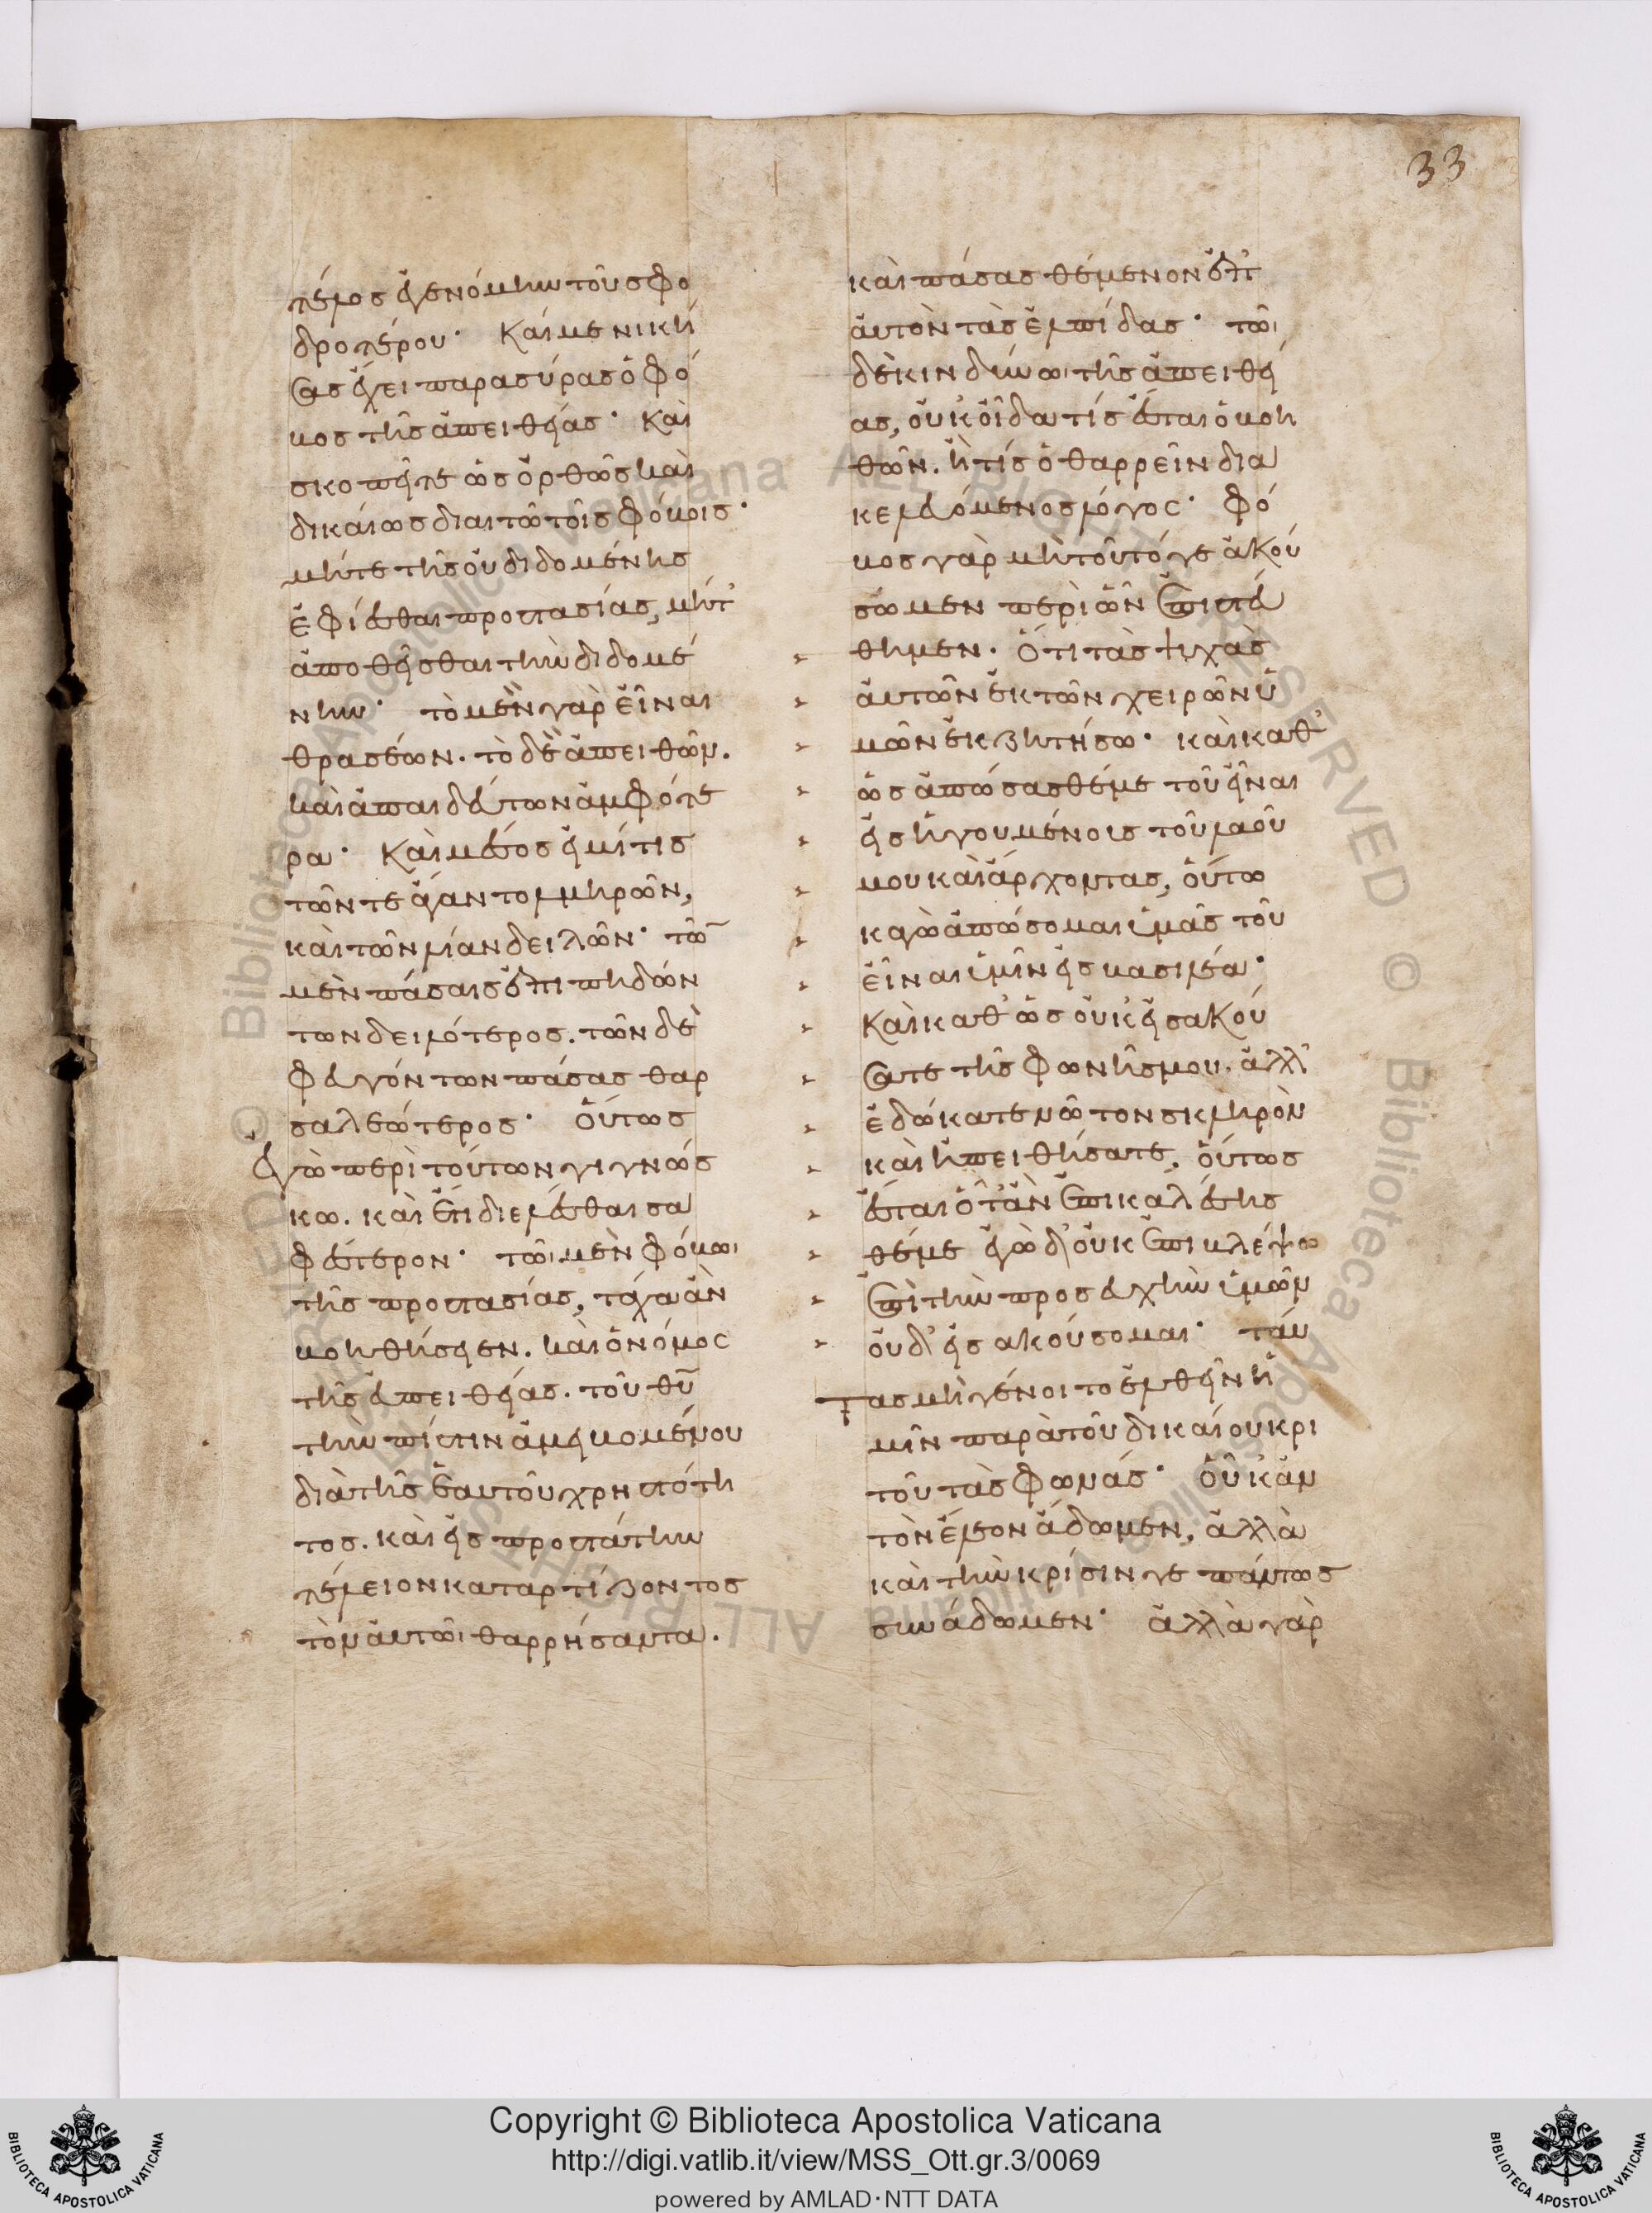 33
λεῖος ἐγενόμην τοῦ σφο
δροτέρου· Καί με νική
σας ἔχει παρασύρας ὁ φό
βος τῆς ἀπειθείας· Καὶ
σκοπεῖτε ὡς ὀρθῶς καὶ
δικαίως διαιτῶ τοῖς φόβοις·
μήτε τῆς οὐ διδομένης
ἐφίεσθαι προστασίας, μήτ'
ἀποθεῖσθαι τὴν διδομέ
νην· τὸ μὲν γὰρ εἶναι
θρασέων. τὸ δὲ ἀπειθῶν.
καὶ ἀπαιδεύτων ἀμφότε
ρα· Καὶ μέσος εἰμί τις
τῶν τε ἄγαν τολμηρῶν,
καὶ τῶν λίαν δειλῶν· τῶν
μὲν πάσαις ἐπιπηδών
των δειλότερος. τῶν δὲ
φευγόντων πάσας θαρ
σαλεώτερος· Οὕτως
ἐγὼ περὶ τούτων γιγνώσ
κω. καὶ ἔτι διελέσθαι σα
φέστερον· τῶι μὲν φόβωι
τῆς προστασίας, τάχ' ἂν
βοηθήσειεν. καὶ ὁ νόμος
τῆς εὐπειθείας. τοῦ θυ
τὴν πίστιν ἀμειβομένου
διὰ τῆς ἑαυτοῦ χρηστότη
τος. καὶ εἰς προστάτην
τέλειον καταρτίζοντος
τὸν αὐτῶι θαρρήσαντα.
καὶ πάσας θέμενον ἐπ'
αὐτὸν τὰς ἐλπίδας· τῶι
δὲ κινδύνωι τῆς ἀπειθεί
ας, οὐκ οἶδα τίς ἔσται ὁ βοη
θῶν. ἢ τίς ὁ θαρρεῖν δια
κελευόμενος λόγος· φό
βος γὰρ μὴ τοῦτό γε ἀκού
σωμεν περὶ ὧν ἐπιστεύ
θημεν. Ὅτι τὰς ψυχὰς
αὐτῶν ἐκ τῶν χειρῶν ὑ
μῶν ἐκζητήσω· καὶ καθ'
ὡς ἀπώσασθέ με τοῦ εἶναι
εἰς ἡγουμένοις τοῦ λαοῦ
μου καὶ ἄρχοντας, οὕτω
κἀγὼ ἀπώσομαι ὑμᾶς τοῦ
εἶναι ὑμῖν εἰς βασιλέα·
Καὶ καθ' ὡς οὐκ εἰσακού
σατε τῆς φωνῆς μου. ἀλλ'
ἐδώκατε νῶτον σκληρὸν
καὶ ἠπειθήσατε. οὕτως
ἔσται ὅτ' ἂν ἐπικαλέσησ
θέ με ἐγὼ δ' οὐκ ἐπιβλέψω
ἐπὶ τὴν προσευχὴν ὑμῶν
οὐδ' εἰσακούσομαι· ταύ
τας μὴ γένοιτο ἐλθεῖν ἡ
μῖν παρὰ τοῦ δικαίου κρι
τοῦ τὰς φωνάς· Οὐκ ἂν
τὸν ἔλεον ᾄδωμεν, ἀλλὰ
καὶ τὴν κρίσιν γε πάντως
συνᾴδωμεν· ἀλλὰ γὰρ
Copyright © Biblioteca Apostolica Vaticana
http://digi.vatlib.it/view/MSS_Ott.gr.3/0069
powered by AMLAD·NTT DATA